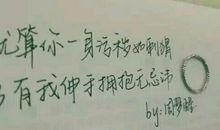 算你一身污秽如刺猬
有我伸手拥抱无忌讳
by:周梦